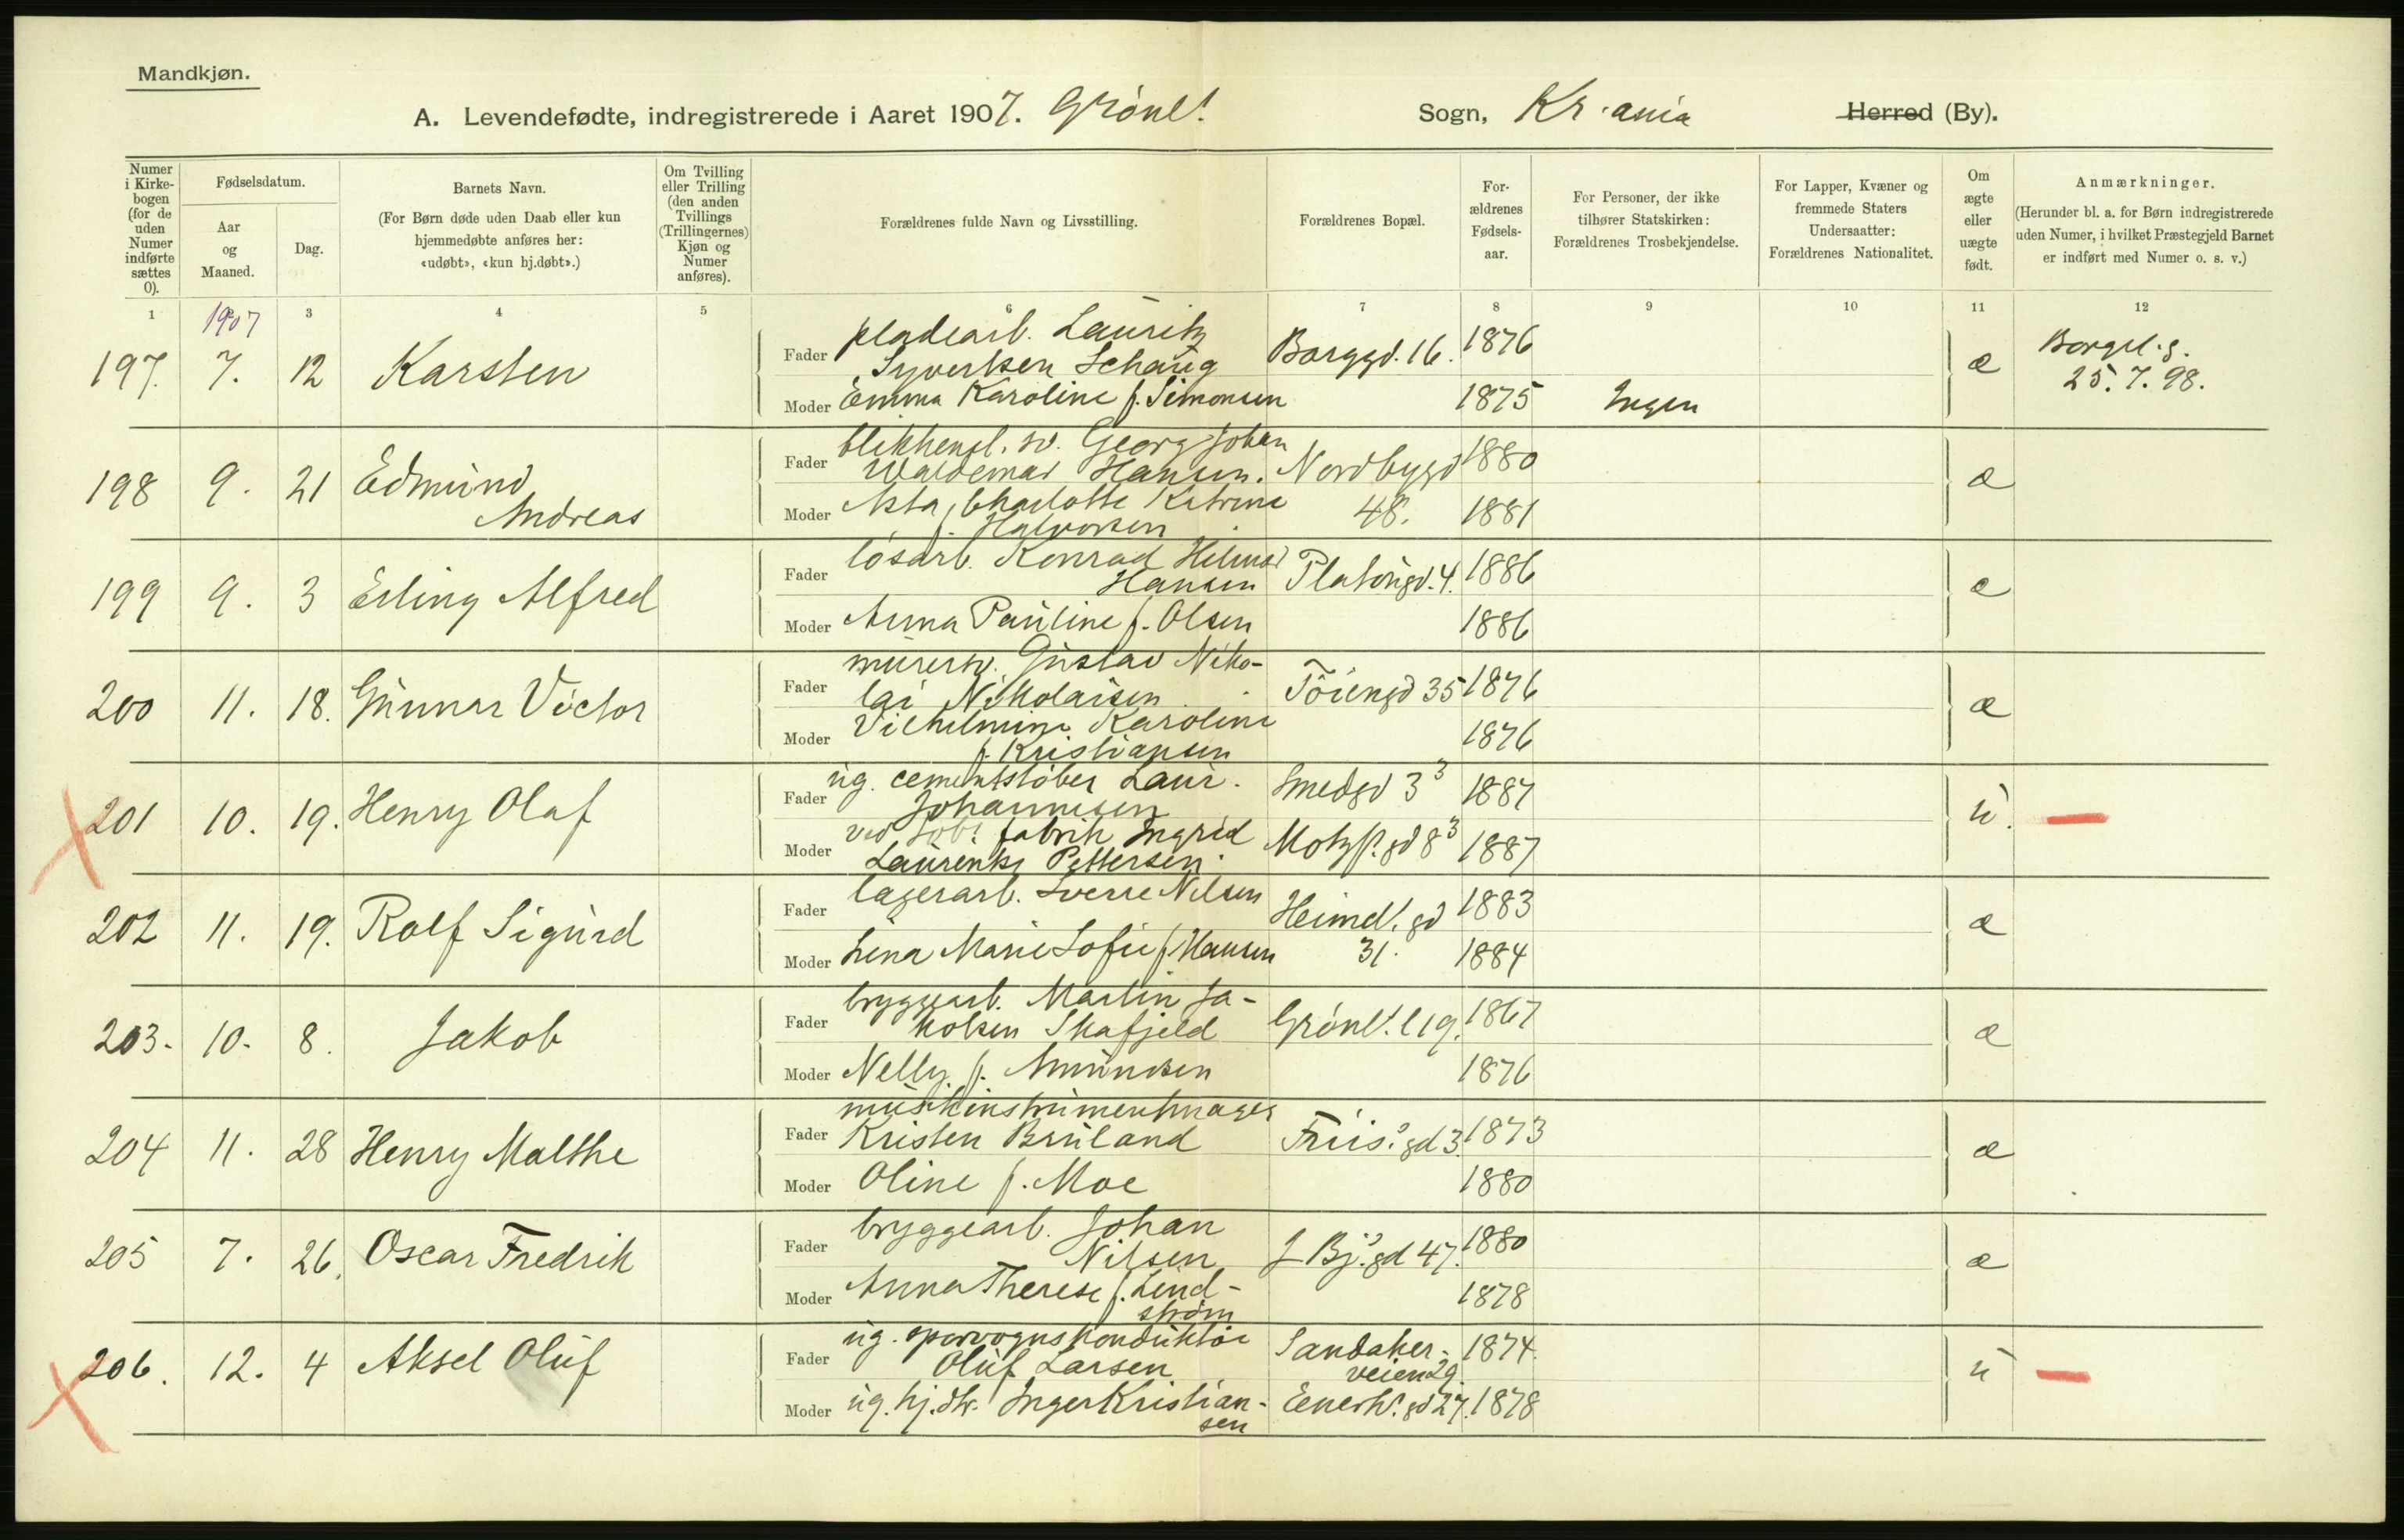 Mandkjøn.
A. Levendefødte, indregistrerede i Aaret 1907. Grønl. Sogn, Kr.ania Herred (By).
Numer i Kirkebogen (for de uden Numer indførte sættes 0).
Fødselsdatum.
Aar og Maaned.
Dag.
Barnets Navn.
(For Børn døde uden Daab eller kun hjemmedøbte anføres her: «udøbt», «kun hj.døbt».)
Om Tvilling eller Trilling (den anden Tvillings (Trillingernes) Kjøn og Numer anføres).
Forældrenes fulde Navn og Livsstilling.
Forældrenes Bopæl.
Forældrenes Fødselsaar.
For Personer, der ikke tilhører Statskirken: Forældrenes Trosbekjendelse.
For Lapper, Kvæner og fremmede Staters Undersaatter: Forældrenes Nationalitet.
Om ægte eller uægte født.
Anmærkninger.
(Herunder bl. a. for Børn indregistrerede uden Numer, i hvilket Præstegjeld Barnet er indført med Numer o. s. v.)
1 3 4 5 6 7 8 9 10 11 12
1907
197. 7. 12 Karsten
Fader pladearb. Lauritz
Syvertsen Schaug Borggd. 16. 1876
Moder Emma Karoline f. Simonsen 1875 Ingen
æ Borgel. g.
25. 7. 98.
198 9. 21 Edmund
Andreas
Fader blikkensl. sv. Georg Johan
Waldemar Hansen. Nordbygd 1880
Moder Asta Charlotte Katrine 48. 1881
f. Halvorsen
æ
199 9. 3 Erling Alfred
Fader løsarb. Konrad Hilmar
Hansen Platousgd. 4. 1886
Moder Anna Pauline f. Olsen 1886
æ
200 11. 18. Gunnar Victor
Fader murersv. Gustav Niko-
lai Nikolaisen Tøiengd 35 1876
Moder Vilhelmine Karoline 1876
f. Kristiansen
æ
201 10. 19. Henry Olaf
Fader ug. cementstøber Laur.
Johannesen Smedgd 3³ 1887
Moder ved Tob. fabrik Ingrid
Laurentze Pettersen. Motzf. gd 8³ 1887
u.
202 11. 19. Rolf Sigurd
Fader lagerarb. Sverre Nilsen Heimd. gd 1883
Moder Lina Marie Sofie f. Hansen 31. 1884
æ
203. 10. 8. Jakob
Fader bryggearb. Martin Ja-
kobsen Skafjeld Grønl. l 19. 1867
Moder Nelly f. Amundsen 1876
æ
204 11. 28 Henry Malthe
Fader musikinstrumentmager
Kristen Bruland Friis. gd 3. 1873
Moder Oline f. Moe 1880
æ
205 7. 26. Oscar Fredrik
Fader bryggearb. Johan
Nilsen J Bj. gd 47. 1880
Moder Anna Therese f. Lind-
strøm 1878
æ
206. 12. 4 Aksel Oluf
Fader ug. sporvognskonduktør
Oluf Larsen Sandaker-
veien 29. 1874.
Moder ug. hj.dtr. Inger Kristian-
sen Enerh. gd 27. 1878
u